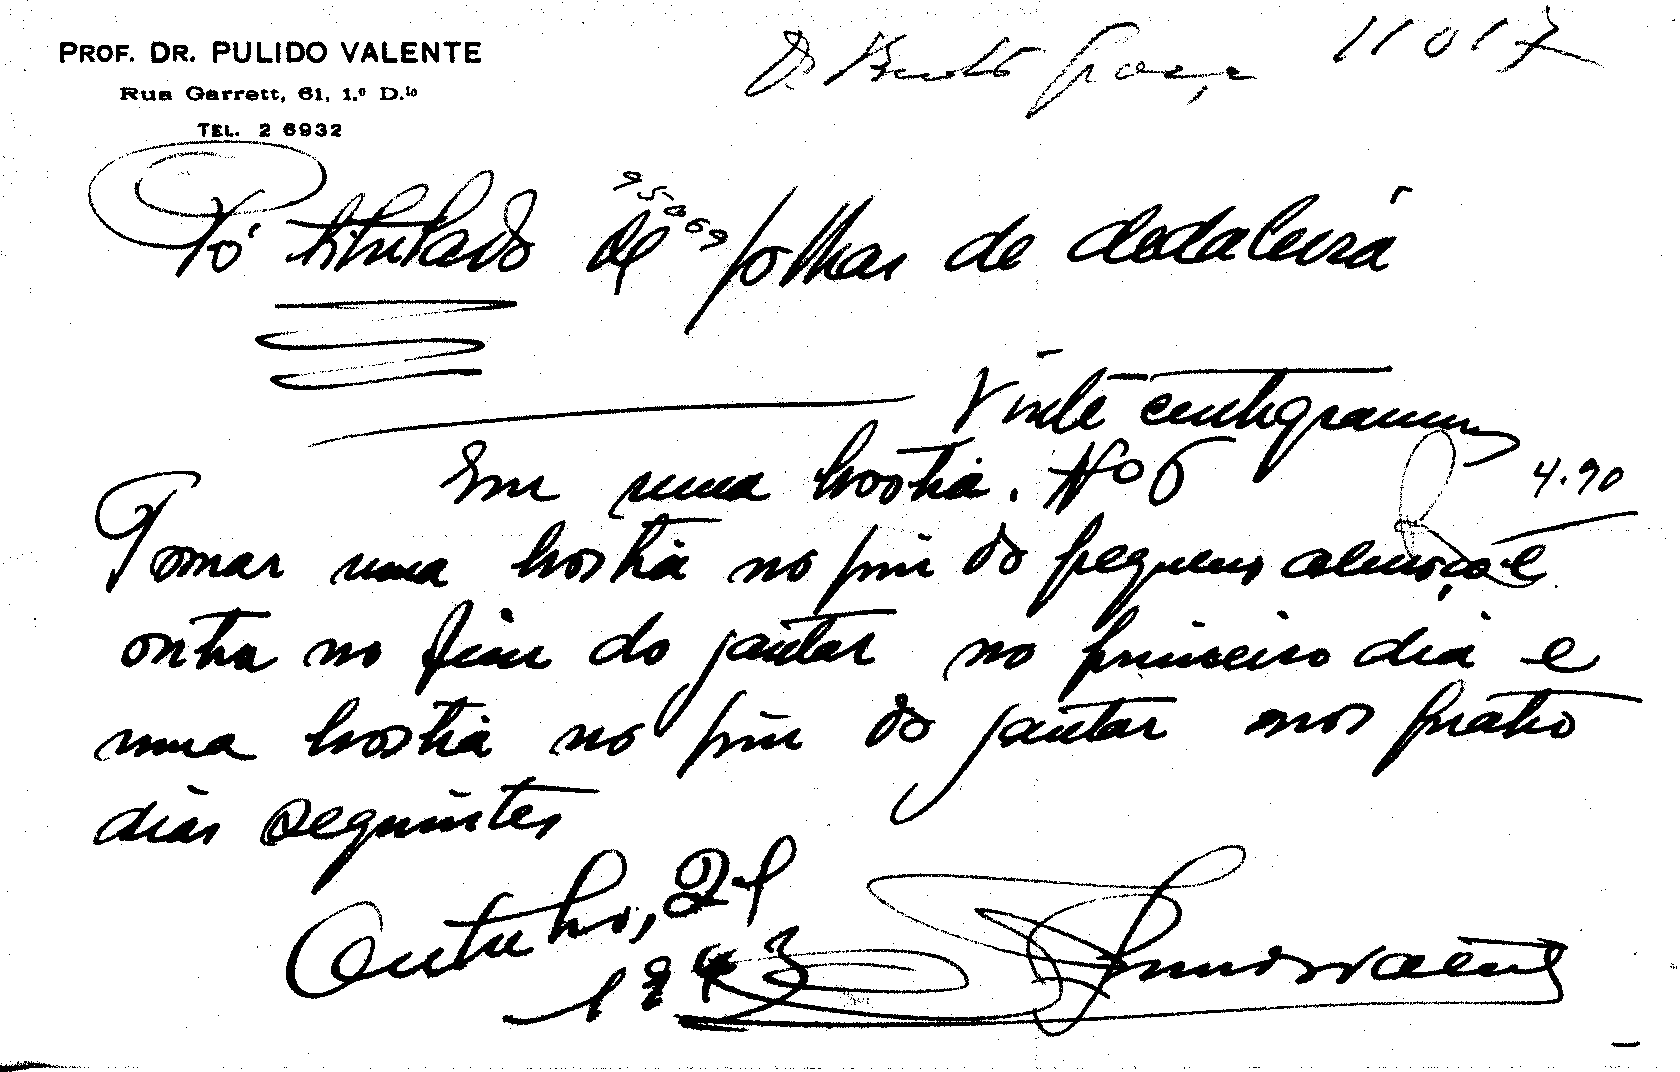 PROF. DR. PULIDO VALENTE
Rua Garrett, 61, 1.º D.to
TEL. 2 6932
Dr Bento 11017
95069
Pó titulado de folhas de dedaleira
Vinte centigramas
Em uma hostia. Nº 6
4.90
Tomar uma hostia no fim do pequeno almoço e
outra no fim do jantar no primeiro dia e
uma hostia no fim do jantar nos quatro
dias seguintes
Outubro, 21
1943 Pulido Valente